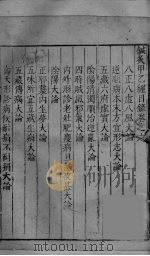 鍼灸甲乙經目錄卷之
八正八虛八風大論
逆順病本末方宜形志大論
五臟六府虛實大論
陰陽清濁順治逆亂大論
四時賊風邪氣大論
內外形診老壯肥瘦病旦
陰陽大論
正邪襲內生夢大論
五味所宜五臟生病大論
五臟傳病大論
壽夭形診病候耐痛不耐痛大論
www.duxiu.com